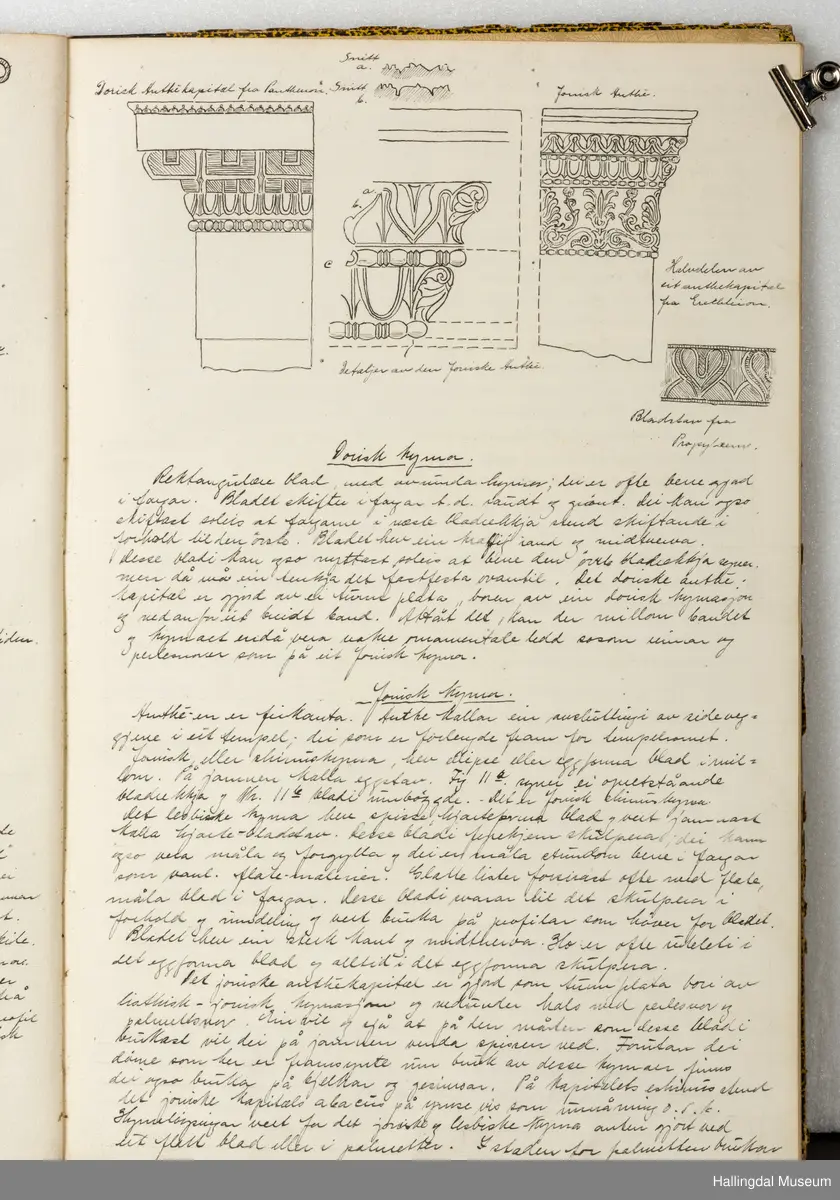 Snitt
a.
Dorisk Anthekapitæl fra Parthenon.
Snitt
b.
Jonisk Anthe.
a.
b.
c
Halvdelen av
eit anthekapitæl
fra Erechteion.
Detaljer av den Joniske Anthe.
Bladstav fra
Propylæerne.
Dorisk kyma.
Rektangulære blad, med avrunda hyrner; dei er ofte bene gjord
i fargar. Bladet skifter i fargar t. d. raudt og grønt. Dei kan ogso
skiftast soleis at fargarne i næste bladrekkja stend skiftande i
forhold til den örste. Bladet hev ein kraftig rand og midtnerva.
Desse bladi kan ogso nyttast soleis at bene den övste bladrekkja syner.
men då må ein tenkja det fastfesta ovantil. Det doriske anthe-
kapitæl er gjord av ei turns plata, boren av ein dorisk kymasjon
og nedanfor eit breidt band. Attåt det, kan der millom bandet
og kymaet endå vera nokre ornamentale ledd sosom reimar og
perlesnorer som på eit Jonisk kyma.
Jonisk kyma.
Anthe-en er firkanta. Anthe kallar ein avsluttingi av sideveg-
gjene i eit tempel; dei som er forlengde fram for tempelromet.
Jonisk, eller ekinuskyma, hev elipse eller eggforma blad imil-
lom. På jamnen kalla eggstav. Fig 11a syner ei opretstående
bladrekkja og Nr. 11b bladi umböygde. Det er Jonisk ekinuskyma
Det lesbiske kyma hev spisse, hjarteforma blad og vert jamnast
kalla hjarte-bladstav. Desse bladi skulpera; dei kann
ogso vera måla og forgyllta og dei er måla stundom bene i fargar
som vanl. flate-mateier. Glatte lister forsirast ofte med flate,
måla blad i fargar. Desse bladi svarar til det skulpera i
forhold og inndeling og vert bruka på profilar som höver for bladet.
Bladet hev ein sterk kant og midtnerva. Ho er ofte uteleti i
det eggforma blad og alltid i det eggforma skulpera.
Det joniske anthekapitæl er gjord som tunn plata bori av
lesbisk-jonisk kymasjon og nedunder hals med perlesnor og
palmetsnor. Ein vil og sjå at på den måten som desse bladi
brukast vil dei på jamnen venda spissen ned. Forutan dei
döme som her er framsynte um bruk av desse kymaer finns
dei ogso bruka på bjelkar og gesimsar. På kapitelets ekinus stend
det joniske kapitæls abacus på ymse vis som umråming o. s. b.
Hyrnelöysingar vert for det joniske og lesbiske kyma anten gjort ved
eit flett blad eller i palmetter. I staden for palmetten brukar
Hallingdal Museum